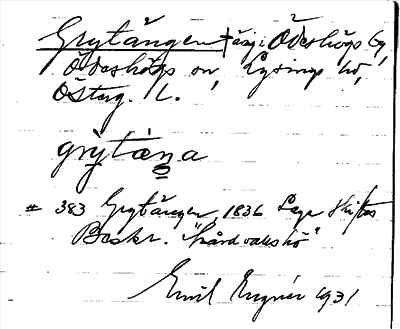 Grytängen, äng i Ödeshögs by,
Ödeshögs sn, Lysings hd,
Österg. L.
grỳtæŋa
# 383 Grytängen 1836 Laga Skiftes
Beskr. "hårdvallshö"
Emil Engnér 1931